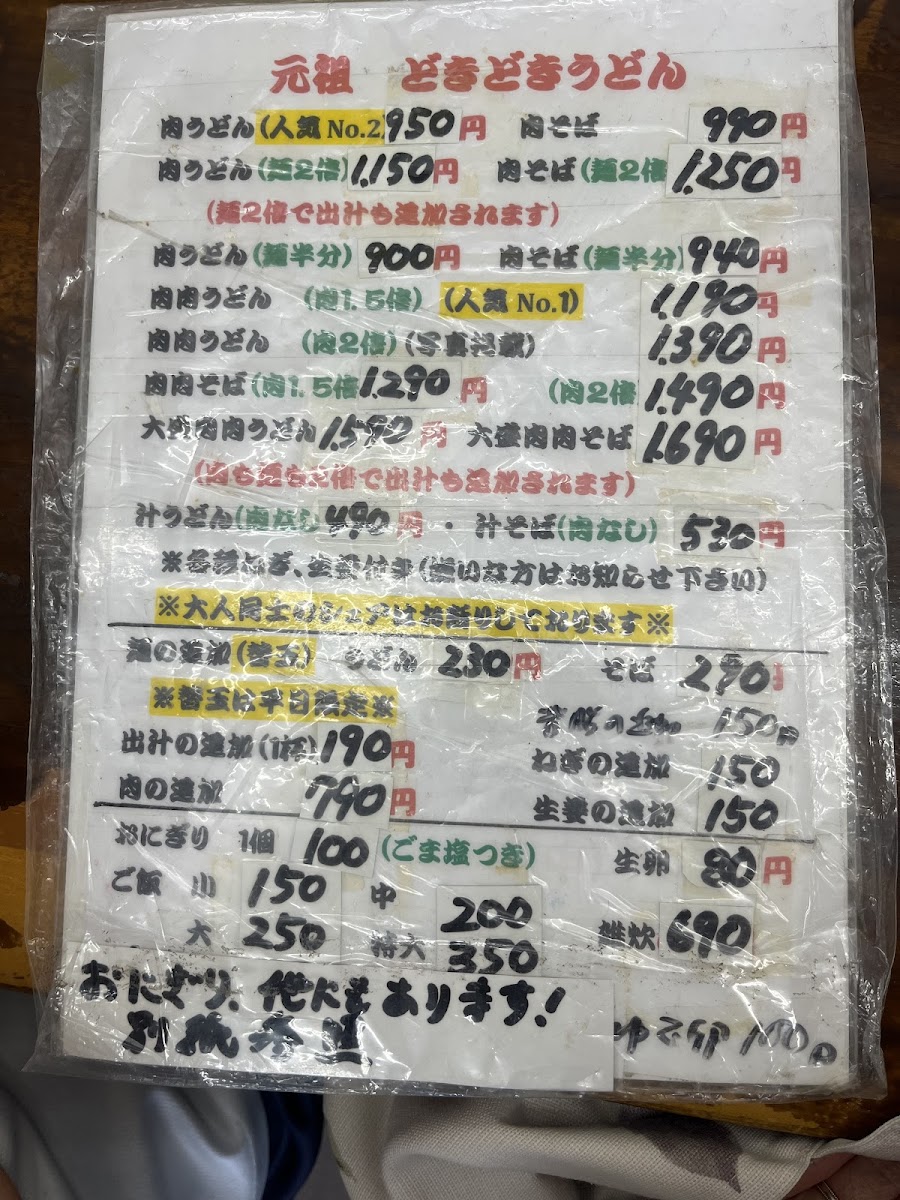 元祖 どきどきうどん
肉うどん(人気No.2) 950円 肉そば 990円
肉うどん(麺2倍) 1,150円 肉そば(麺2倍 1,250円
(麺2倍で出汁も追加されます)
肉うどん(麺半分) 900円 肉そば(麺半分) 940円
肉肉うどん (肉1.5倍) (人気No.1) 1,190円
肉肉うどん (肉2倍)(写真掲載) 1,390円
肉肉そば(肉1.5倍 1,290円 (肉2倍 1,490円
大盛肉肉うどん 1,590円 大盛肉肉そば 1,690円
(肉も麺も2倍で出汁も追加されます)
汁うどん(肉なし 490円・汁そば(肉なし) 530円
※各種ねぎ、生姜付き(嫌いな方はお知らせ下さい)
※大人同士のシェアはお断りしております※
麺の追加(替玉) うどん 230円 そば 290円
※替玉は平日限定※
の追加 150円
出汁の追加(1杯) 190円 ねぎの追加 150
肉の追加 790円 生姜の追加 150
おにぎり 1個 100(ごま塩つき) 生卵 80円
ご飯 小 150 中 200
大 250 特大 350 雑炊 690
おにぎり、他にもあります!
別紙参照
100円